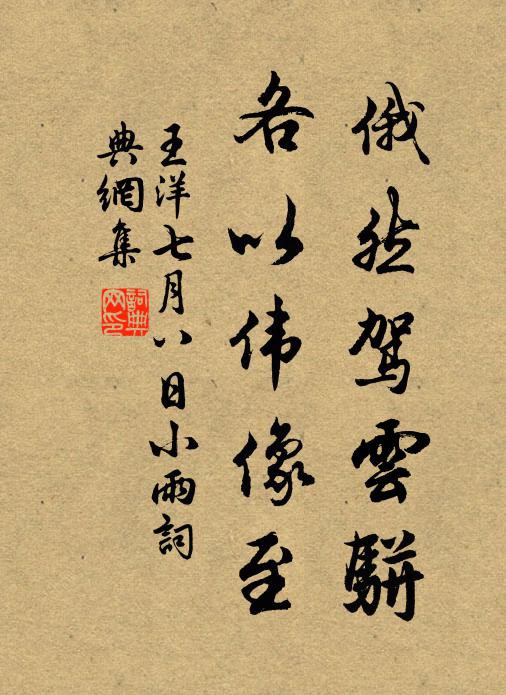 俄然駕雲駢
各以伟像至
王洋七月八日小雨詞
典網集
詞典
网印